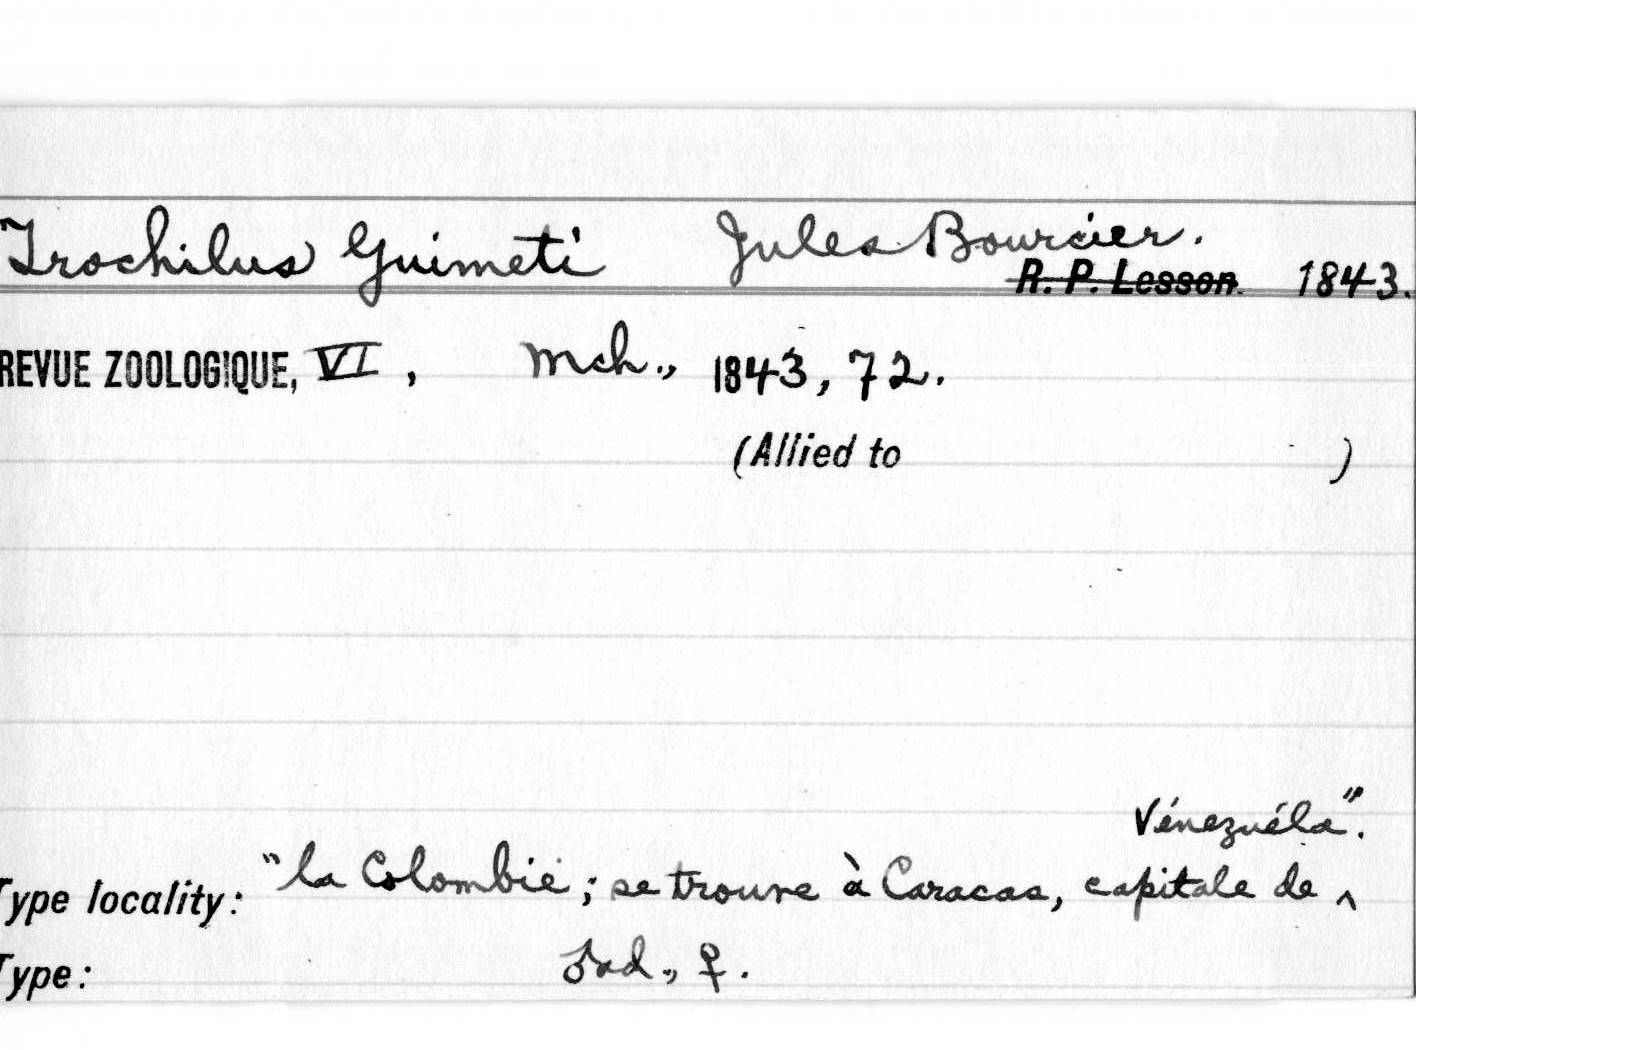 Trochilus Guimeti Jules Bourcier.
R. P. Lesson. 1843.
REVUE ZOOLOGIQUE, VI, Mch., 1843, 72.
(Allied to )
Vénezuéla".
Type locality: "la Colombie; se trouve à Caracas, capitale de ^
Type: ♂ad., ♀.